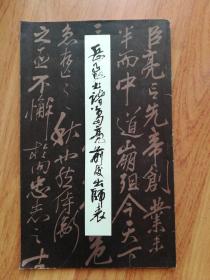 岳飛书諸葛亮前后出師表
臣亮言先帝創業未
半而中道崩殂今天下
危
急存亡之秋也然侍衛
之臣不懈於内忠志之士